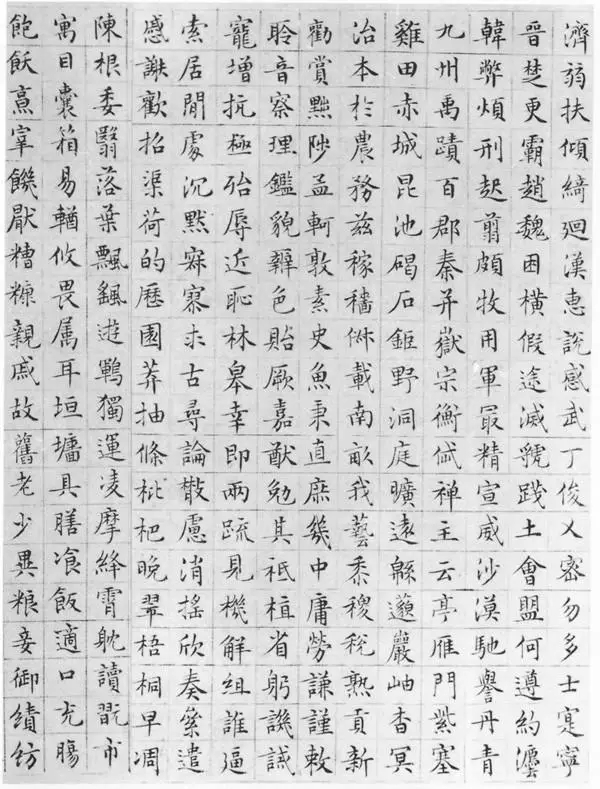 濟弱扶傾綺廻漢惠說感武丁俊乂密勿多士寔寧
晉楚更霸趙魏困橫假途滅虢踐土會盟何遵約灋
韓弊煩刑起翦頗牧用軍最精宣威沙漠馳譽丹青
九州禹蹟百郡秦并嶽宗衡岱禅主云亭雁門紫塞
雞田赤城昆池碣石鉅野洞庭曠遠緜邈巖岫杳冥
治本於農務茲稼穡俶載南畝我藝黍稷稅熟貢新
勸賞黜陟孟軻敦素史魚秉直庶幾中庸勞謙謹敕
聆音察理鑑貌辯色貽厥嘉猷勉其祗植省躬譏誡
寵增抗極殆辱近恥林皋幸即兩疏見機解組誰逼
索居閒處沉默寂寥求古尋論散慮消搖欣奏絫遣
慼謝歡招渠荷的歷園莽抽條枇杷晚翠梧桐早凋
陳根委翳落葉飄颻遊鵾獨運凌摩絳霄耽讀翫市
寓目囊箱易輶攸畏属耳垣墻具膳飡飯適口充腸
飽飫烹宰饑厭糟糠親戚故舊老少異粮妾御績紡